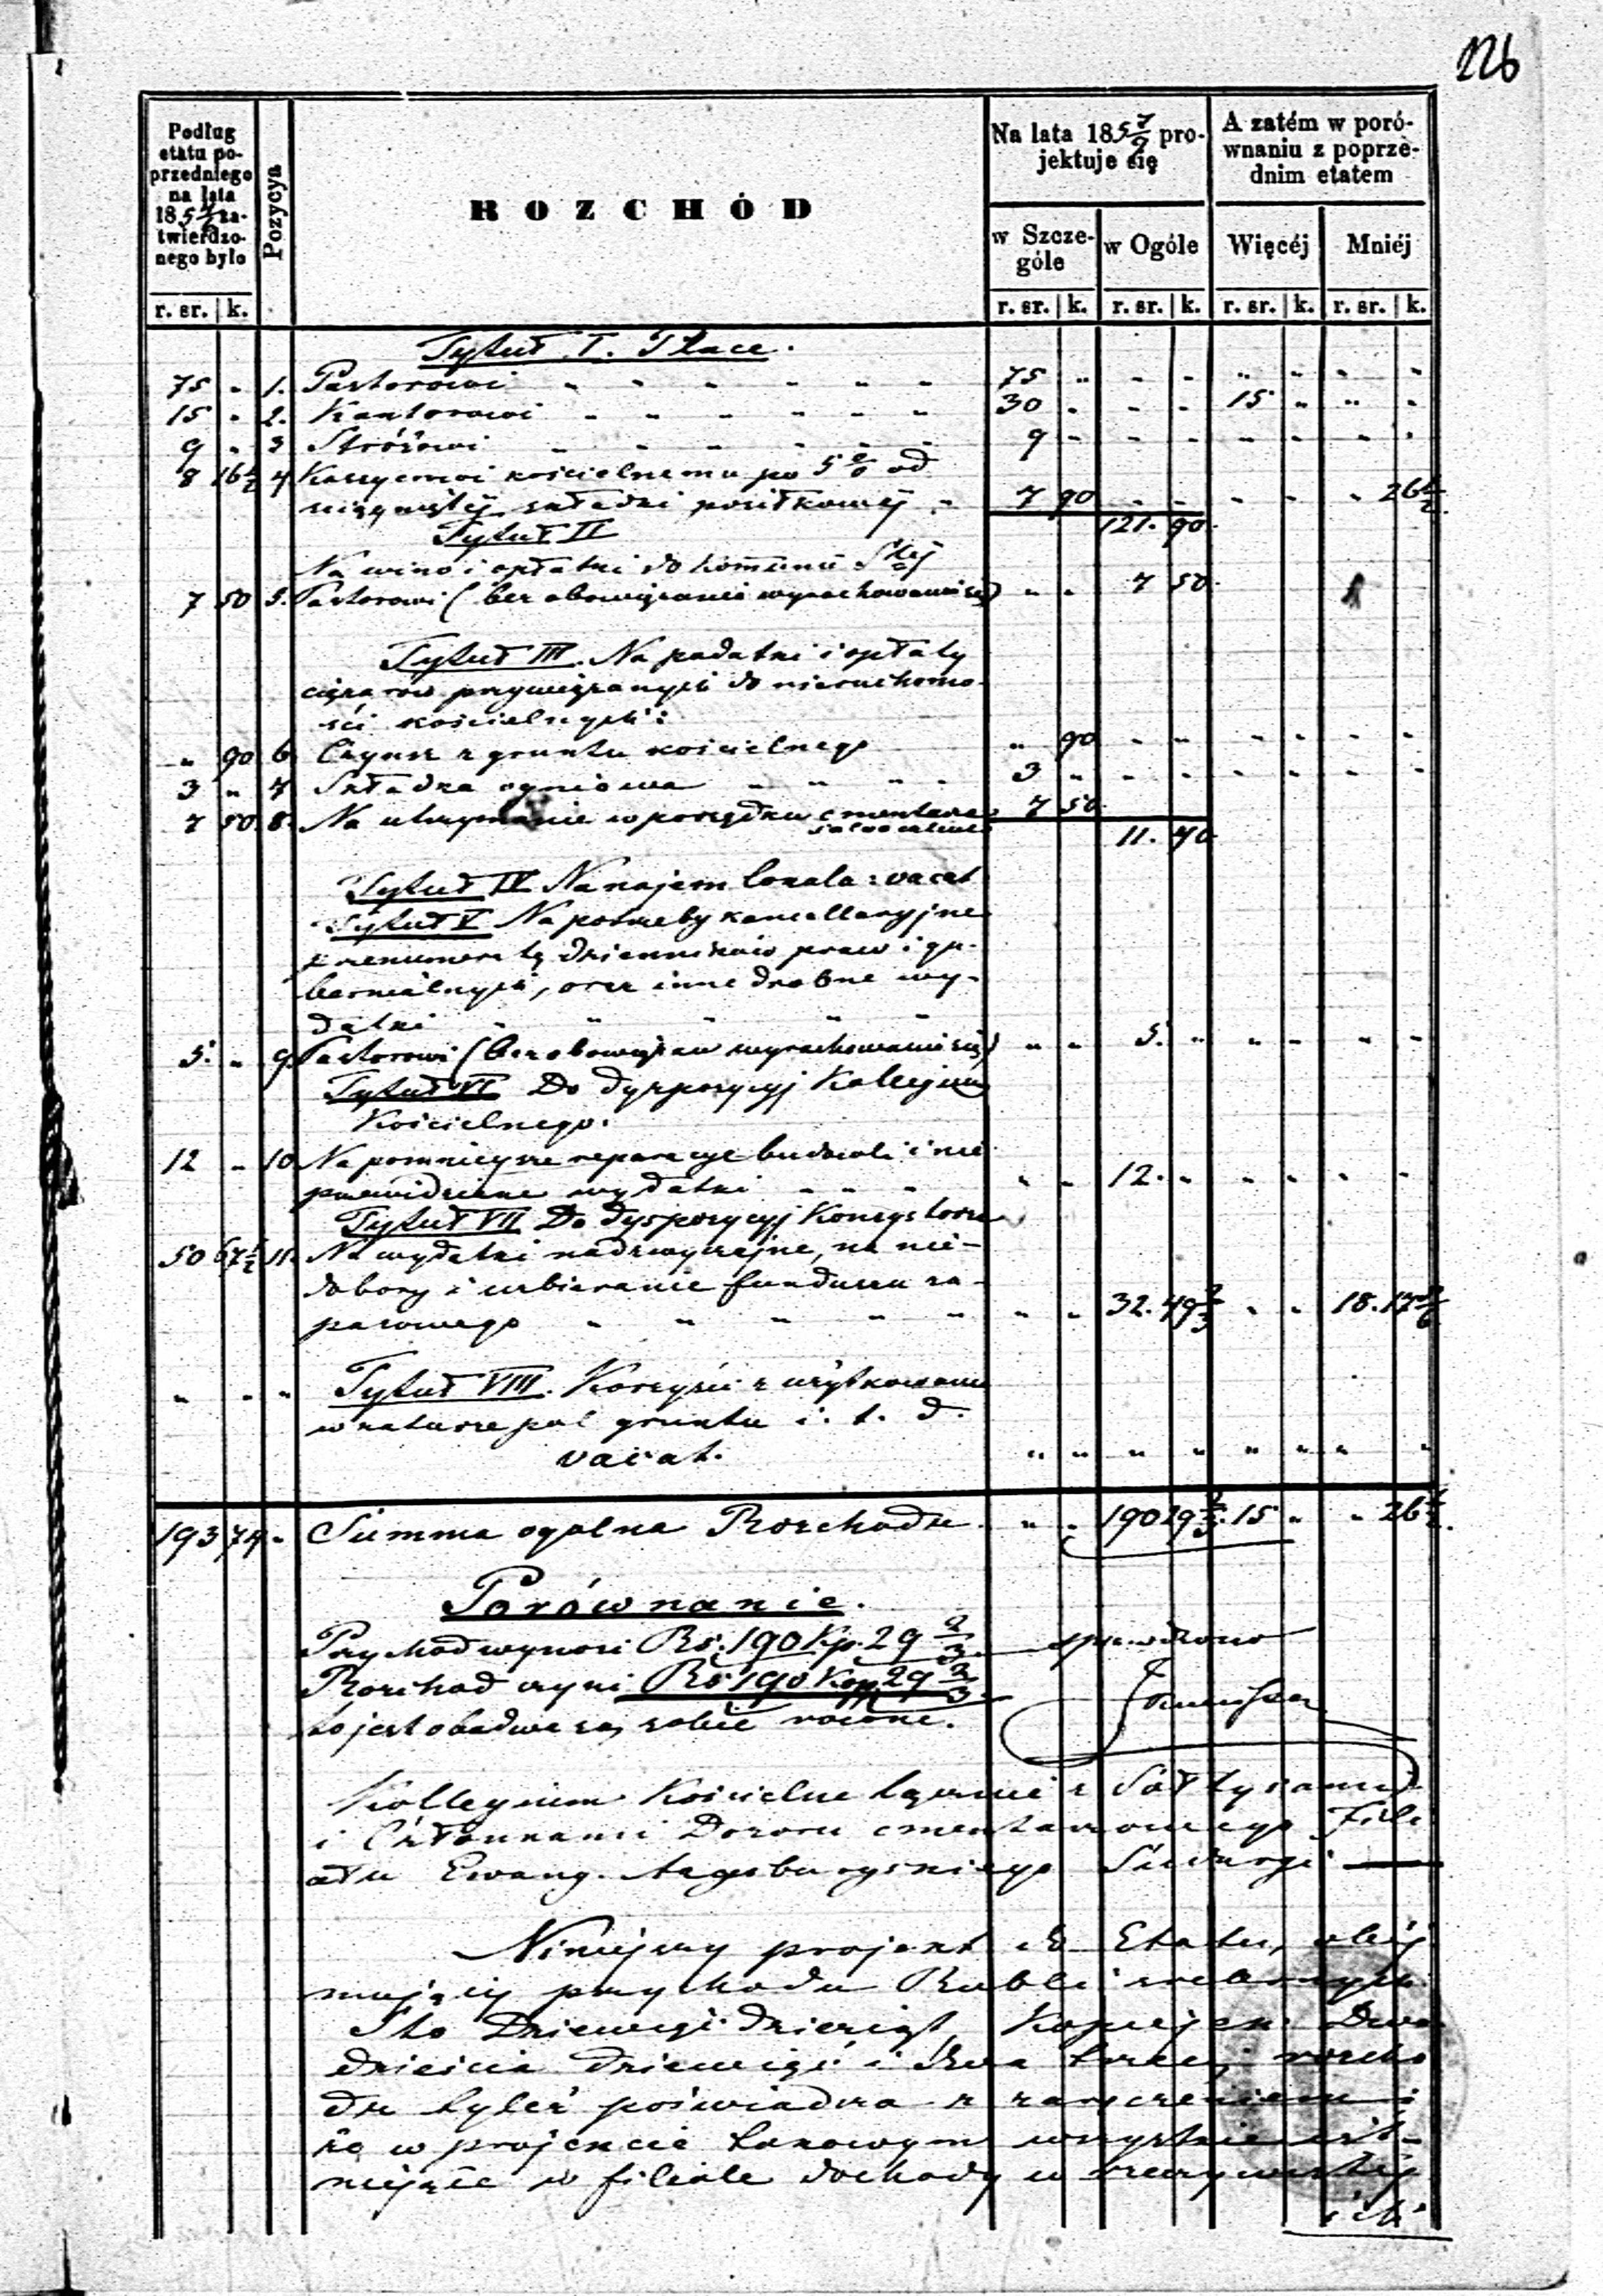 226
Podług etatu poprzedniego na lata 185 zatwierdzonego było
Pozycya
ROZCHÓD
Na lata 185 7/9 projektuje się
A zatém w porównaniu z poprzednim etatem
w Szczególe w Ogóle Więcéj Mniéj
r. sr. k. r. sr. k. r. sr. k. r. sr. k. r. sr. k.
Tytuł I. Płace.
75 " 1. Pastorowi - - - - - - 75 " - - " " " "
15 " 2. Kantorowi - - - - - - 30 " - - 15 " " "
9 " 3 Stróżowi - - - - - 9 " - - - - - -
8 16½ 4 Kassyerowi kościelnemu po 5 % od
składki posiłkowéj " 7 90 - - - - " 26½
121. 90
Tytuł II
Na wino i opłatki do Komunii Stej
7 50 5. Pastorowi (bez obowiązania wyrachowania się) " " 7 50
Tytuł III. Na podatki i opłaty
ciężarów przywiązanych do nieruchomo-
ści kościelnych:
" 90 6 Czynsz z gruntu kościelnego " 90 - - - - - -
3 " 7 Składka ogniowa - - - - 3 " - - - - - -
7 50 8. Na utrzymanie w porządku cmentarza 7 50
11. 40
Tytuł IV Na najem lokalu: vacat
Tytuł V Na potrzeby kancellaryjne
prenumeratę dzienników praw i gu-
bernialnych, oraz inne drobne wy-
datki - - - - -
5. " 9. Pastorowi (bez obowiązan wyrachowania się) " " 5. " " " " "
Tytuł VI Do dyspozycyj Kollegium
Kościelnego.
12 " 10 Na pomniejsze reparacye budowli i nie
przewidziane wydatki - - - " " 12. " " " " "
Tytuł VII Do dyspozycyj Konsystorza
50 67½ 11. Na wydatki nadzwyczajne, na nie-
dobory i uzbieranie funduszu za-
pasowego - - - - - " " 32. 49⅔ " " 18. 17 5/6
" " " Tytuł VIII. Korzyści z użytkowania
w naturze pól gruntu i. t. d.
vacat. " " " " " " " "
193 74 " Summa ogólna Rozchodu " " 190 29⅔ 15 " " 26½
Porównanie.
Przychód wynosi Rs. 190 Kp. 29⅔ sprawdzono
Rozchód czyni Rs 190 Kop 29⅔
to jest obadwa są sobie równe.
Kollegium Kościelne łącznie z Sołtysami
i Członkami Dozoru cmentarnego Fili-
ału Ewang. Augsburgskiego
Niniejszy projekt do Etatu, obéj-
mujący przychodu Rubli srebrnych
Sto Dziewięćdziesiąt Kopiejek Dwa-
dzieścia dziewięć i dwa trzecie rozcho-
du tyleż poświadcza z zaręczeniem i
że w projekcie takowym wszystkie ist-
niejące w filiale dochody w rzeczywistéj
ich